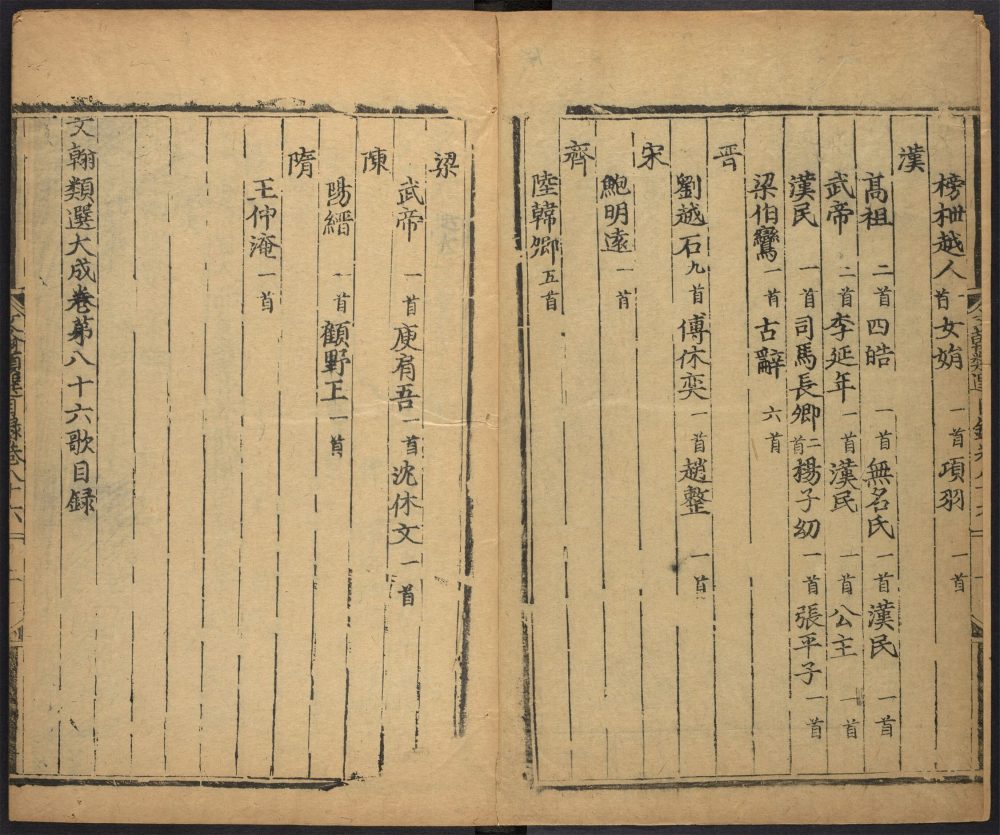 榜枻越人一首女娟一首項羽一首
漢
髙祖二首四皓一首無名氏一首漢民一首
武帝二首李延年一首漢民一首公主一首
漢民一首司馬長卿二首楊子幼一首張平子一首
梁伯鸞一首古辭六首
晋
劉越石九首傅休奕一首趙整一首
宋
鮑明遠一首
齊
陸韓卿五首
梁
武帝一首庾肩吾一首沈休文一首
陳
陽縉一首顧野王一首
隋
王仲淹一首
文翰類選大成卷第八十六歌目録